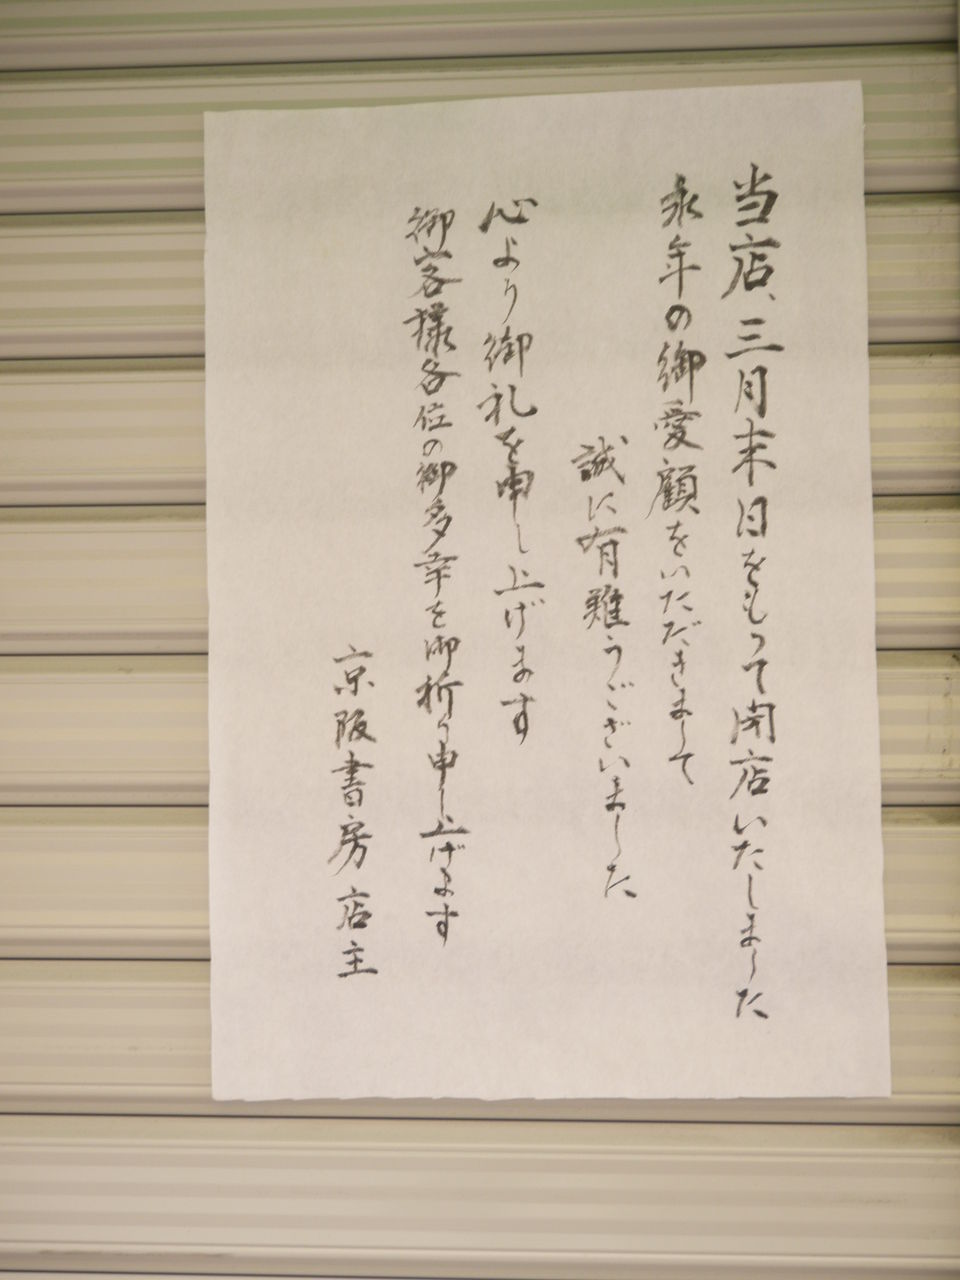 当店、三月末日をもって閉店いたしました
永年の御愛顧をいただきまして
誠に有難うございました
心より御礼を申し上げます
御客様各位の御多幸を御祈り申し上げます
京阪書房 店主